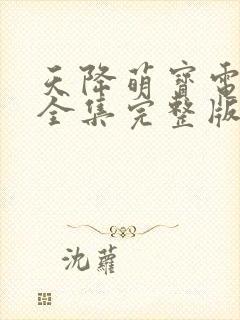 天降萌寶電
全集完整版
沈蘿